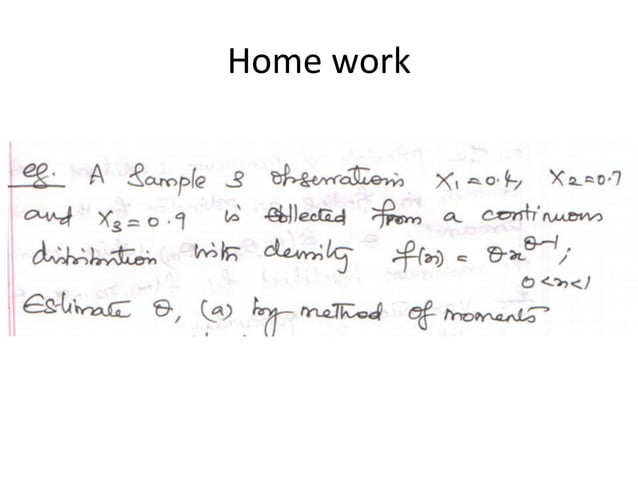 Home work
eg. A Sample 3 observations X₁=0.4, X₂=0.7
and X₃=0.9 is collected from a continuous
distribution with density f(x) = θx^θ-1;
0<x<1
Estimate θ, (a) by method of moments